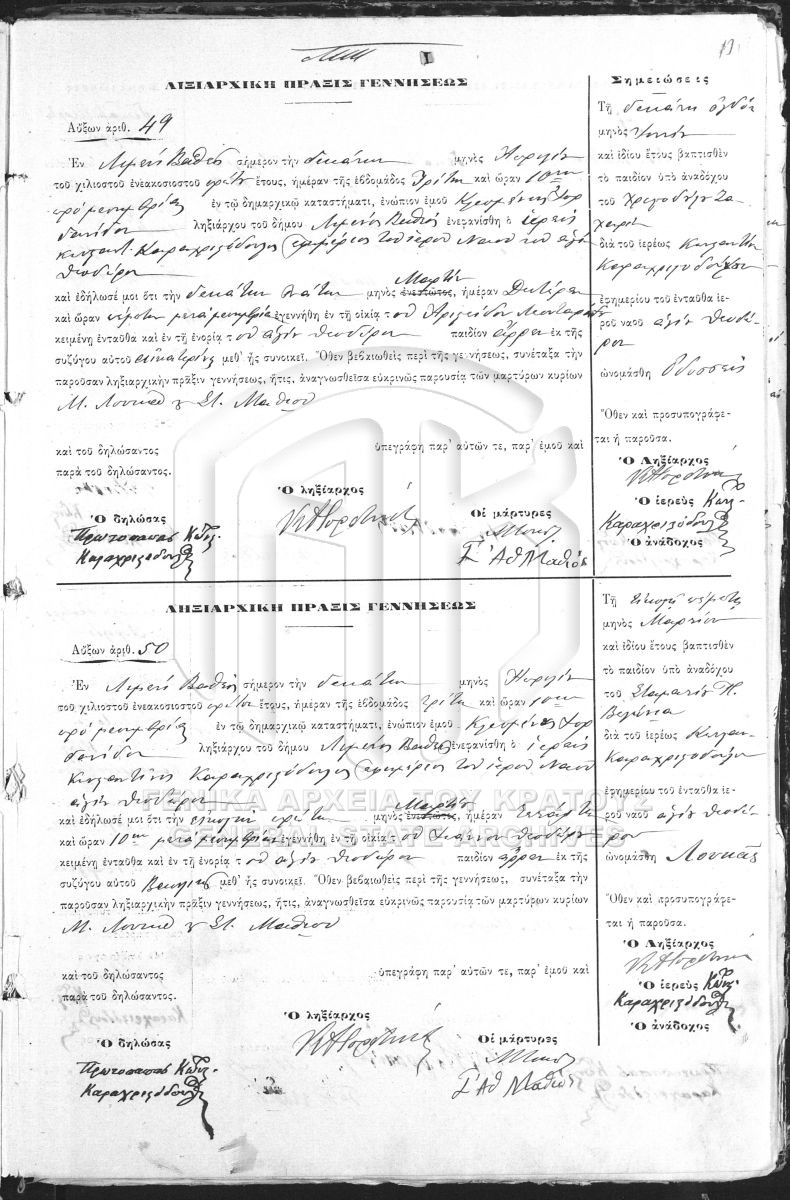 ΛΙΞΙΑΡΧΙΚΗ ΠΡΑΞΙΣ ΓΕΝΝΗΣΕΩΣ
Αὔξων ἀριθ. 49
Ἐν Λιμένι Βαθέος σήμερον τὴν δεκάτην μηνὸς Ἀπριλίου
τοῦ χιλιοστοῦ ἐνεακοσιοστοῦ πρώτου ἔτους, ἡμέραν τῆς ἑβδομάδος Τρίτην καὶ ὥραν 10ην
πρὸ μεσημβρίας ἐν τῷ δημαρχικῷ καταστήματι, ἐνώπιον ἐμοῦ
ληξιάρχου τοῦ δήμου Λιμένος Βαθέος ἐνεφανίσθη ὁ ἱερεὺς
Κωνσταντ. Καραχριστόδουλος ἐφημέριος τοῦ ἱεροῦ Ναοῦ τοῦ ἁγίου
Θεοδώρου
Μαρτίου
καὶ ἐδήλωσέ μοι ὅτι τὴν δεκάτην μηνὸς ἐνεστῶτος, ἡμέραν Δευτέραν
καὶ ὥραν πέμπτην μετὰ μεσημβρίαν ἐγεννήθη ἐν τῇ οἰκίᾳ τοῦ
κειμένῃ ἐνταῦθα καὶ ἐν τῇ ἐνορίᾳ τοῦ ἁγίου Θεοδώρου παιδίον ἄρρεν ἐκ τῆς
συζύγου αὐτοῦ Αἰκατερίνης μεθ' ἧς συνοικεῖ. Ὅθεν βεβαιωθεὶς περὶ τῆς γεννήσεως, συνέταξα τὴν
παροῦσαν ληξιαρχικὴν πρᾶξιν γεννήσεως, ἥτις, ἀναγνωσθεῖσα εὐκρινῶς παρουσίᾳ τῶν μαρτύρων κυρίων
Μ. Λουκᾶ & Στ. Μαθιοῦ
καὶ τοῦ δηλώσαντος ὑπεγράφη παρ' αὐτῶν τε, παρ' ἐμοῦ καὶ
παρὰ τοῦ δηλώσαντος.
Ὁ ληξίαρχος
Ὁ δηλώσας Οἱ μάρτυρες
Πρωτοπαπᾶς Κωνστ.
Καραχριστόδουλος Σ. Ἀθ Μαθιός
Σημειώσεις
Τῇ δεκάτῃ ὀγδόῃ
μηνὸς
καὶ ἰδίου ἔτους βαπτισθὲν
τὸ παιδίον ὑπὸ ἀναδόχου
τοῦ Χριστοδούλου Ζα-
χαρίου
διὰ τοῦ ἱερέως Κωνσταντίνου
Καραχριστοδούλου
ἐφημερίου τοῦ ἐνταῦθα ἱε-
ροῦ ναοῦ ἁγίου Θεοδώ-
ρου
ὠνομάσθη Ὀδυσσεὺς
Ὅθεν καὶ προσυπογράφε-
ται ἡ παροῦσα.
Ὁ Ληξίαρχος
Ὁ ἱερεὺς Κωνστ.
Καραχριστόδουλος
Ὁ ἀνάδοχος
ΛΗΞΙΑΡΧΙΚΗ ΠΡΑΞΙΣ ΓΕΝΝΗΣΕΩΣ
Αὔξων ἀριθ. 50
Ἐν Λιμένι Βαθέος σήμερον τὴν δεκάτην μηνὸς Ἀπριλίου
τοῦ χιλιοστοῦ ἐνεακοσιοστοῦ πρώτου ἔτους, ἡμέραν τῆς ἑβδομάδος τρίτην καὶ ὥραν 10ην
πρὸ μεσημβρίας ἐν τῷ δημαρχικῷ καταστήματι, ἐνώπιον ἐμοῦ
ληξιάρχου τοῦ δήμου Λιμένος Βαθέος ἐνεφανίσθη ὁ ἱερεὺς
Κωνσταντῖνος Καραχριστόδουλος ἐφημέριος τοῦ ἱεροῦ Ναοῦ
ἁγίου Θεοδώρου
Μαρτίου
καὶ ἐδήλωσέ μοι ὅτι τὴν εἰκοστὴν πρώτην μηνὸς ἐνεστῶτος, ἡμέραν Τετάρτην
καὶ ὥραν 10ην μετὰ μεσημβρίαν ἐγεννήθη ἐν τῇ οἰκίᾳ τοῦ Θεοδώρου
κειμένῃ ἐνταῦθα καὶ ἐν τῇ ἐνορίᾳ τοῦ ἁγίου Θεοδώρου παιδίον ἄρρεν ἐκ τῆς
συζύγου αὐτοῦ μεθ' ἧς συνοικεῖ. Ὅθεν βεβαιωθεὶς περὶ τῆς γεννήσεως, συνέταξα τὴν
παροῦσαν ληξιαρχικὴν πρᾶξιν γεννήσεως, ἥτις, ἀναγνωσθεῖσα εὐκρινῶς παρουσίᾳ τῶν μαρτύρων κυρίων
Μ. Λουκᾶ & Στ. Μαθιοῦ
καὶ τοῦ δηλώσαντος ὑπεγράφη παρ' αὐτῶν τε, παρ' ἐμοῦ καὶ
παρὰ τοῦ δηλώσαντος.
Ὁ ληξίαρχος
Ὁ δηλώσας Οἱ μάρτυρες
Πρωτοπαπᾶς Κωνστ.
Καραχριστόδουλος Σ. Ἀθ Μαθιός
Τῇ εἰκοστῇ πέμπτῃ
μηνὸς Μαρτίου
καὶ ἰδίου ἔτους βαπτισθὲν
τὸ παιδίον ὑπὸ ἀναδόχου
τοῦ Σταματίου Π.
διὰ τοῦ ἱερέως Κωνσταν.
Καραχριστοδούλου
ἐφημερίου τοῦ ἐνταῦθα ἱε-
ροῦ ναοῦ ἁγίου Θεοδώ-
ρου
ὠνομάσθη Λουκᾶς
Ὅθεν καὶ προσυπογράφε-
ται ἡ παροῦσα.
Ὁ Ληξίαρχος
Ὁ ἱερεὺς Κωνστ.
Καραχριστόδουλος
Ὁ ἀνάδοχος
ΓΕΝΙΚΑ ΑΡΧΕΙΑ ΤΟΥ ΚΡΑΤΟΥΣ
GENERAL STATE ARCHIVES